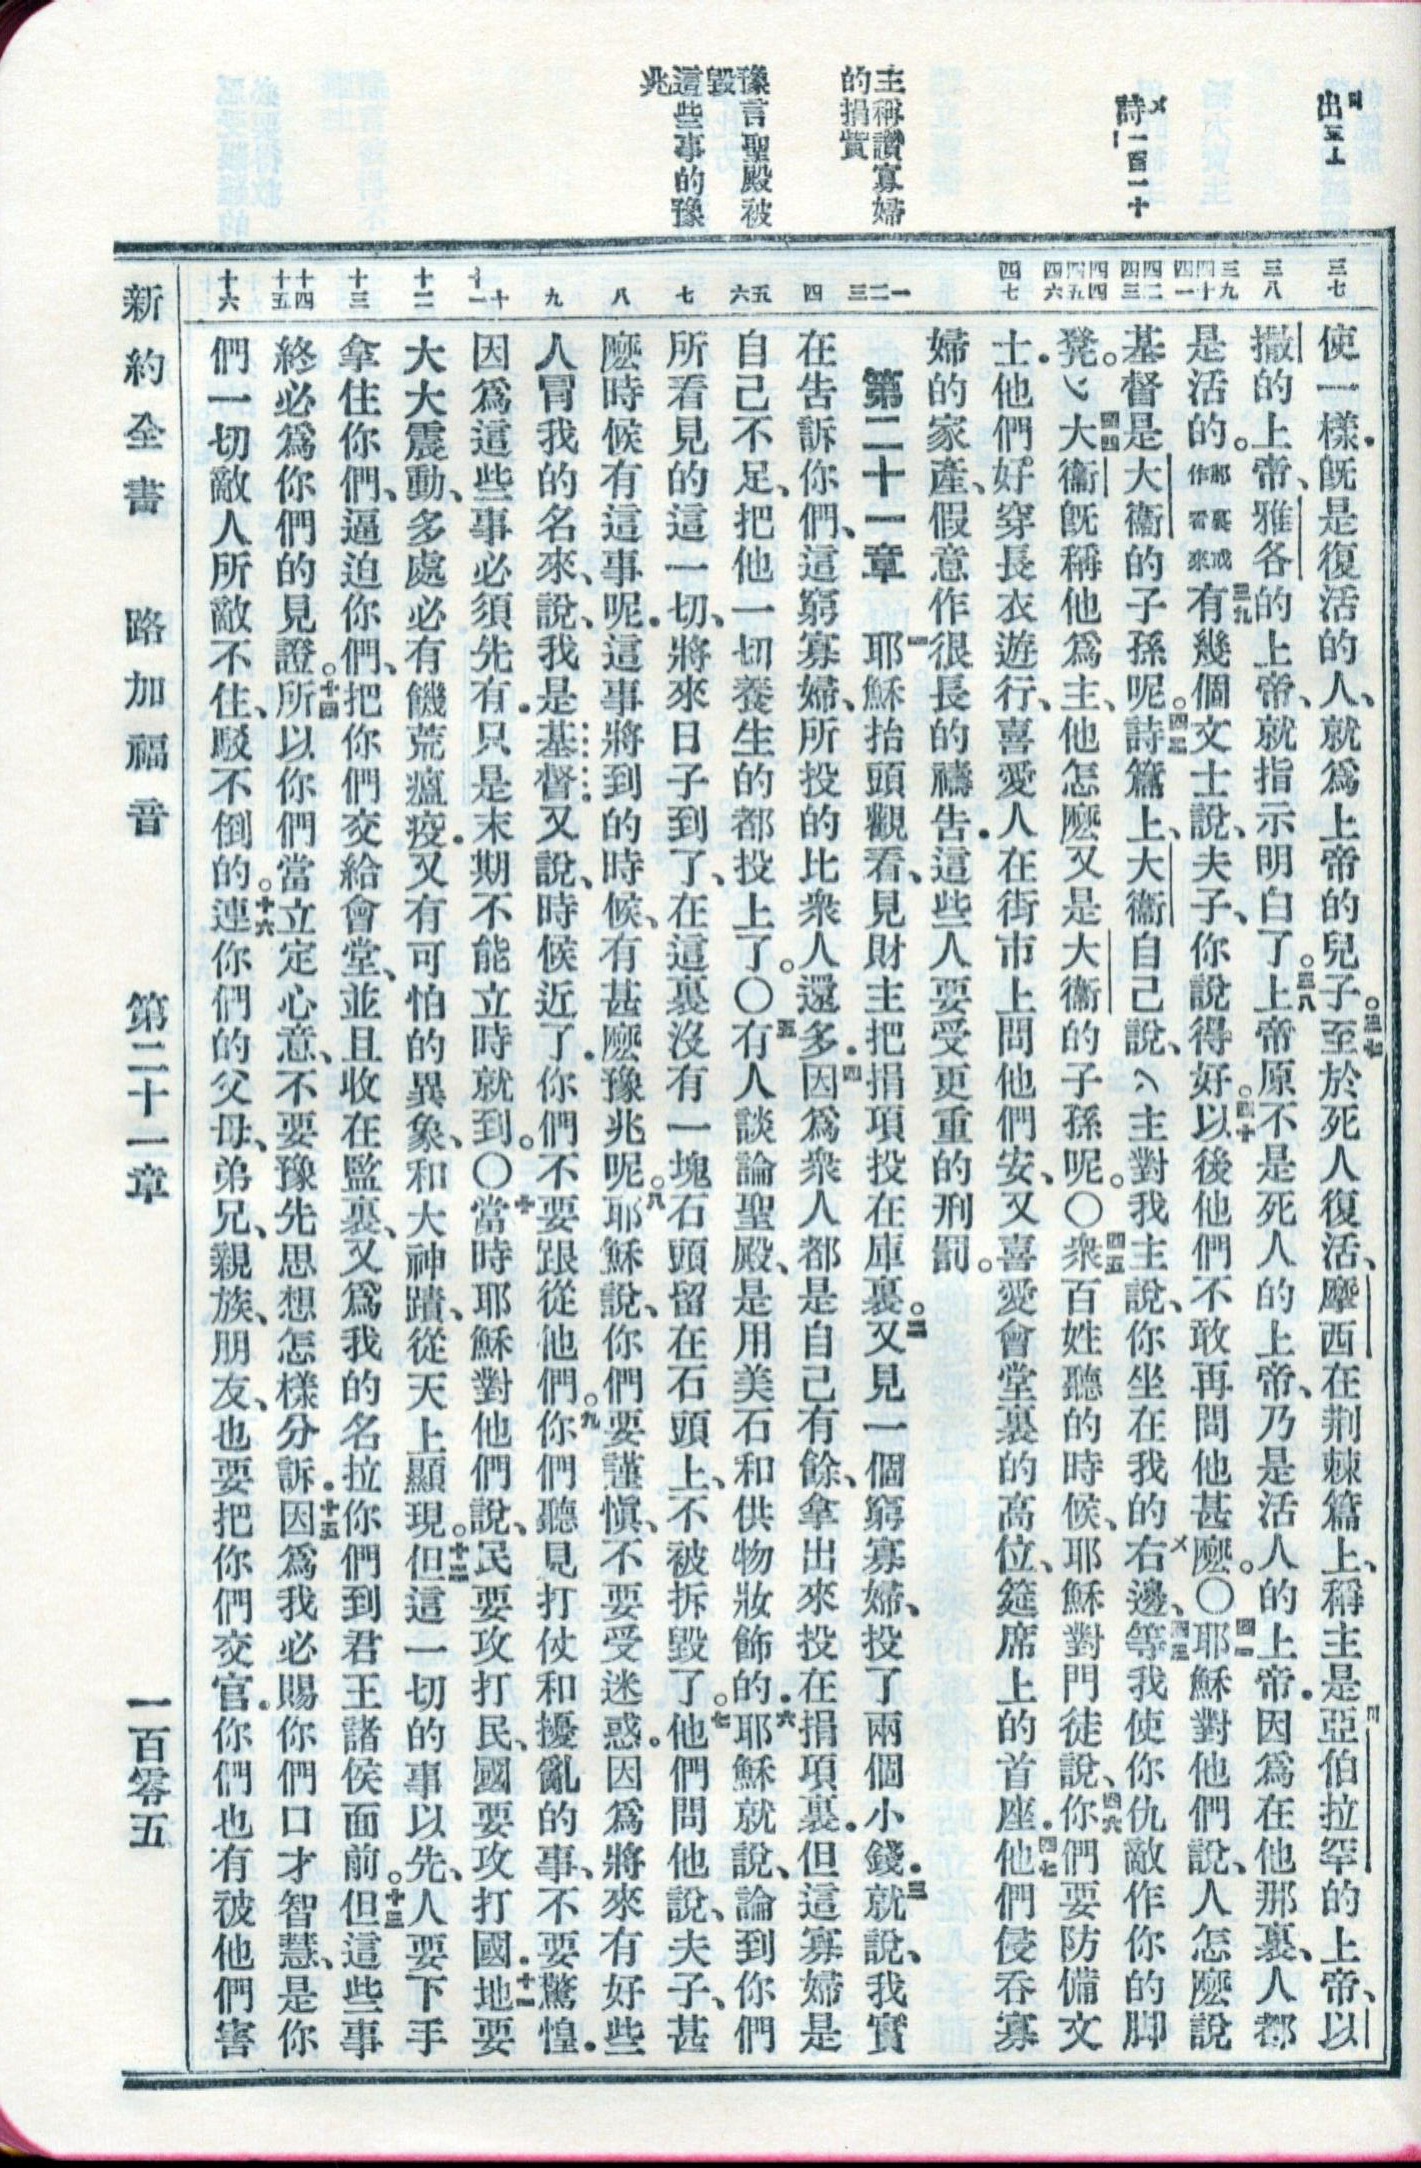 出三上
詩一百一十
主稱讚寡婦
的捐貲
豫言聖殿被
毀
這些事的豫
兆
三七
三八
三九 四十 四一
四二 四三
四四 四五 四六
四七
一 二 三
四
五 六
七
八
九
十 十一
十二
十三
十四 十五
十六
使一樣．旣是復活的人、就爲上帝的兒子。三七至於死人復活、摩西在荆棘篇上、稱主是亞伯拉罕的上帝、以
撒的上帝、雅各的上帝、就指示明白了。三八上帝原不是死人的上帝、乃是活人的上帝．因爲在他那裏、人都
是活的。那裏或作看來三九有幾個文士說、夫子、你說得好。四十以後他們不敢再問他甚麼。〇四一耶穌對他們說、人怎麼說
基督是大衞的子孫呢。四二詩篇上、大衞自己說、〽主對我主說、你坐在我的右邊、四三等我使你仇敵作你的脚
凳。〽四四大衞旣稱他爲主、他怎麼又是大衞的子孫呢。〇四五衆百姓聽的時候、耶穌對門徒說、四六你們要防備文
士．他們好穿長衣遊行、喜愛人在街市上問他們安、又喜愛會堂裏的高位、筵席上的首座．四七他們侵吞寡
婦的家產、假意作很長的禱告．這些人要受更重的刑罰。
第二十一章　一耶穌抬頭觀看、見財主把捐項投在庫裏。二又見一個窮寡婦、投了兩個小錢．三就說、我實
在告訴你們、這窮寡婦、所投的比衆人還多．四因爲衆人都是自己有餘、拿出來投在捐項裏．但這寡婦是
自己不足、把他一切養生的都投上了。〇五有人談論聖殿、是用美石和供物妝飾的．六耶穌就說、論到你們
所看見的這一切、將來日子到了、在這裏沒有一塊石頭留在石頭上、不被拆毀了。七他們問他說、夫子、甚
麼時候有這事呢．這事將到的時候、有甚麼豫兆呢。八耶穌說、你們要謹愼、不要受迷惑。因爲將來有好些
人冒我的名來、說、我是基督．又說、時候近了．你們不要跟從他們。九你們聽見打仗和擾亂的事、不要驚惶．
因爲這些事必須先有．只是末期不能立時就到。〇十當時耶穌對他們說、民要攻打民、國要攻打國．十一地要
大大震動、多處必有饑荒瘟疫．又有可怕的異象、和大神蹟、從天上顯現。十二但這一切的事以先、人要下手
拿住你們、逼迫你們、把你們交給會堂、並且收在監裏、又爲我的名拉你們到君王諸侯面前。十三但這些事
終必爲你們的見證。十四所以你們當立定心意、不要豫先思想怎樣分訴．十五因爲我必賜你們口才智慧、是你
們一切敵人所敵不住、駁不倒的。十六連你們的父母、弟兄、親族、朋友、也要把你們交官．你們也有被他們害
新約全書　路加福音　第二十一章　一百零五